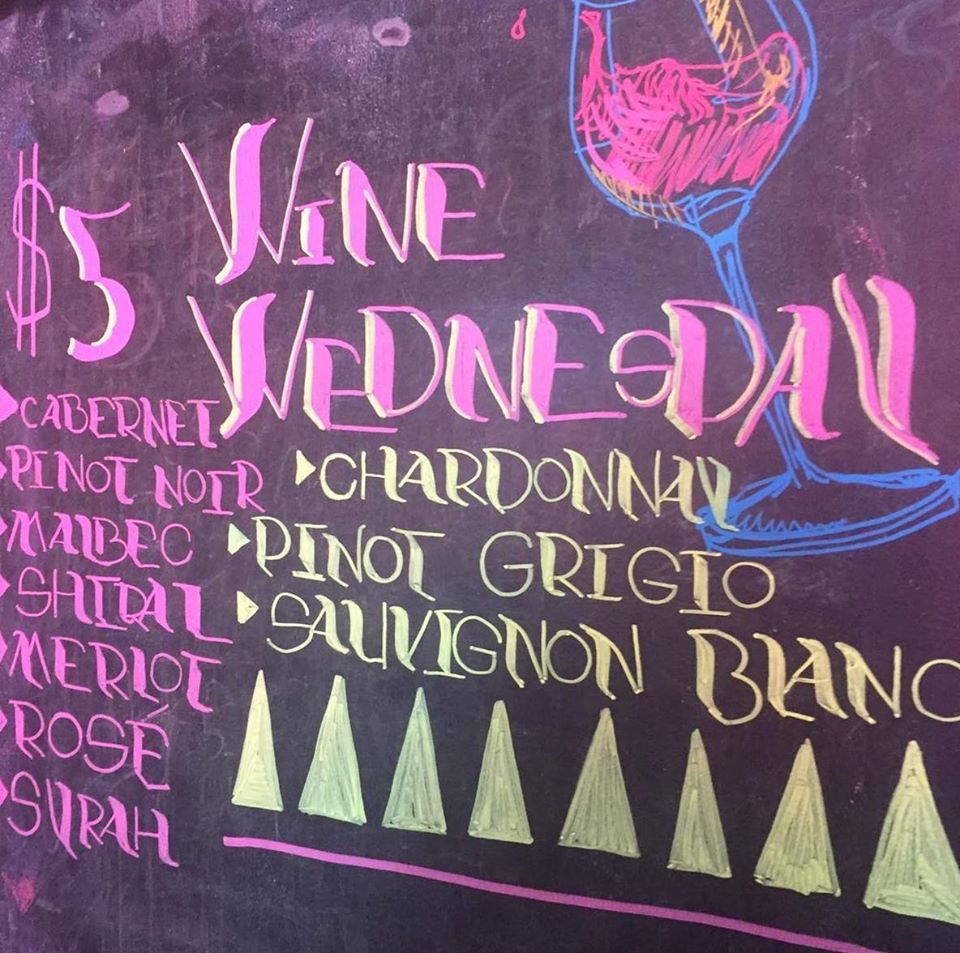 $5 WINE
WEDNESDAY
CABERNET
PINOT NOIR
MALBEC
SHIRAZ
MERLOT
ROSÉ
SYRAH
CHARDONNAY
PINOT GRIGIO
SAUVIGNON BLANC